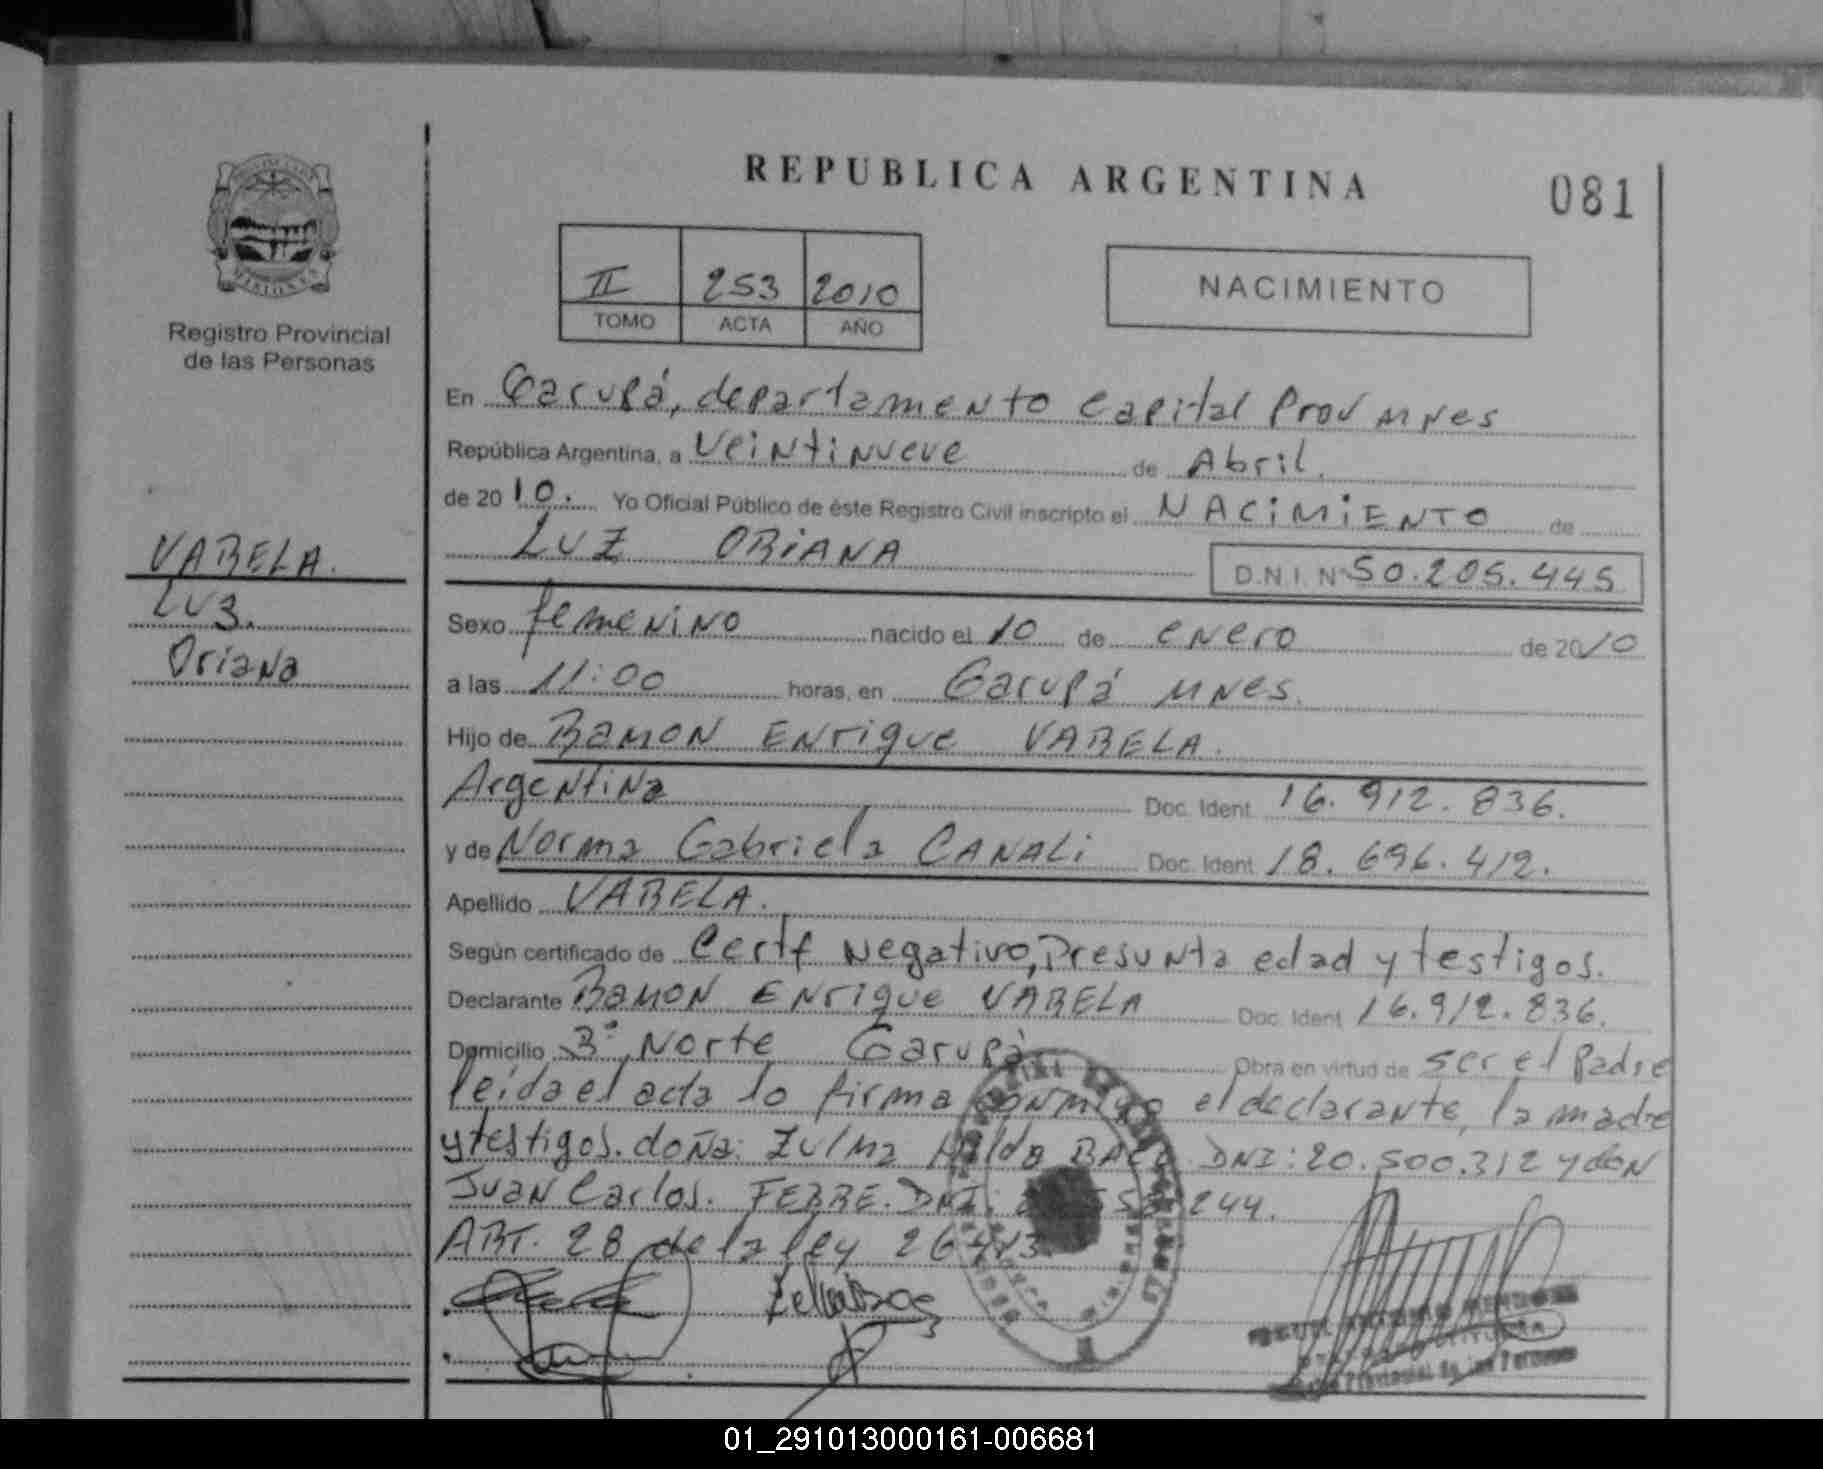 REPUBLICA ARGENTINA
081
II 253 2010
TOMO ACTA AÑO
NACIMIENTO
MISIONES
Registro Provincial
de las Personas
VARELA.
Luz.
Oriana
En Garupá, departamento Capital Prov MNES
República Argentina, a Veintinueve de Abril.
de 2010. Yo Oficial Público de éste Registro Civil inscripto el NACIMIENTO de
LUZ ORIANA
D.N.I. Nº 50.205.445
Sexo femenino nacido el 10 de enero de 2010
a las 11:00 horas, en Garupá MNES.
Hijo de RAMON ENrique VARELA.
Argentina Doc. Ident. 16.912.836.
y de Norma Gabriela CANALI Doc. Ident. 18.696.412.
Apellido VARELA.
Según certificado de Certf Negativo, Presunta edad y testigos.
Declarante RAMON ENrique VARELA Doc. Ident. 16.912.836.
Domicilio Bº Norte Garupá Obra en virtud de ser el Padre
leída el acta lo firma conmigo el declarante, la madre
y testigos. doña: Zulma DNI: 20.500.312 y don
Juan Carlos. FEBRE. DNI: 244.
ART. 28 de la ley 26413.
Provincial de las Personas
01_291013000161-006681